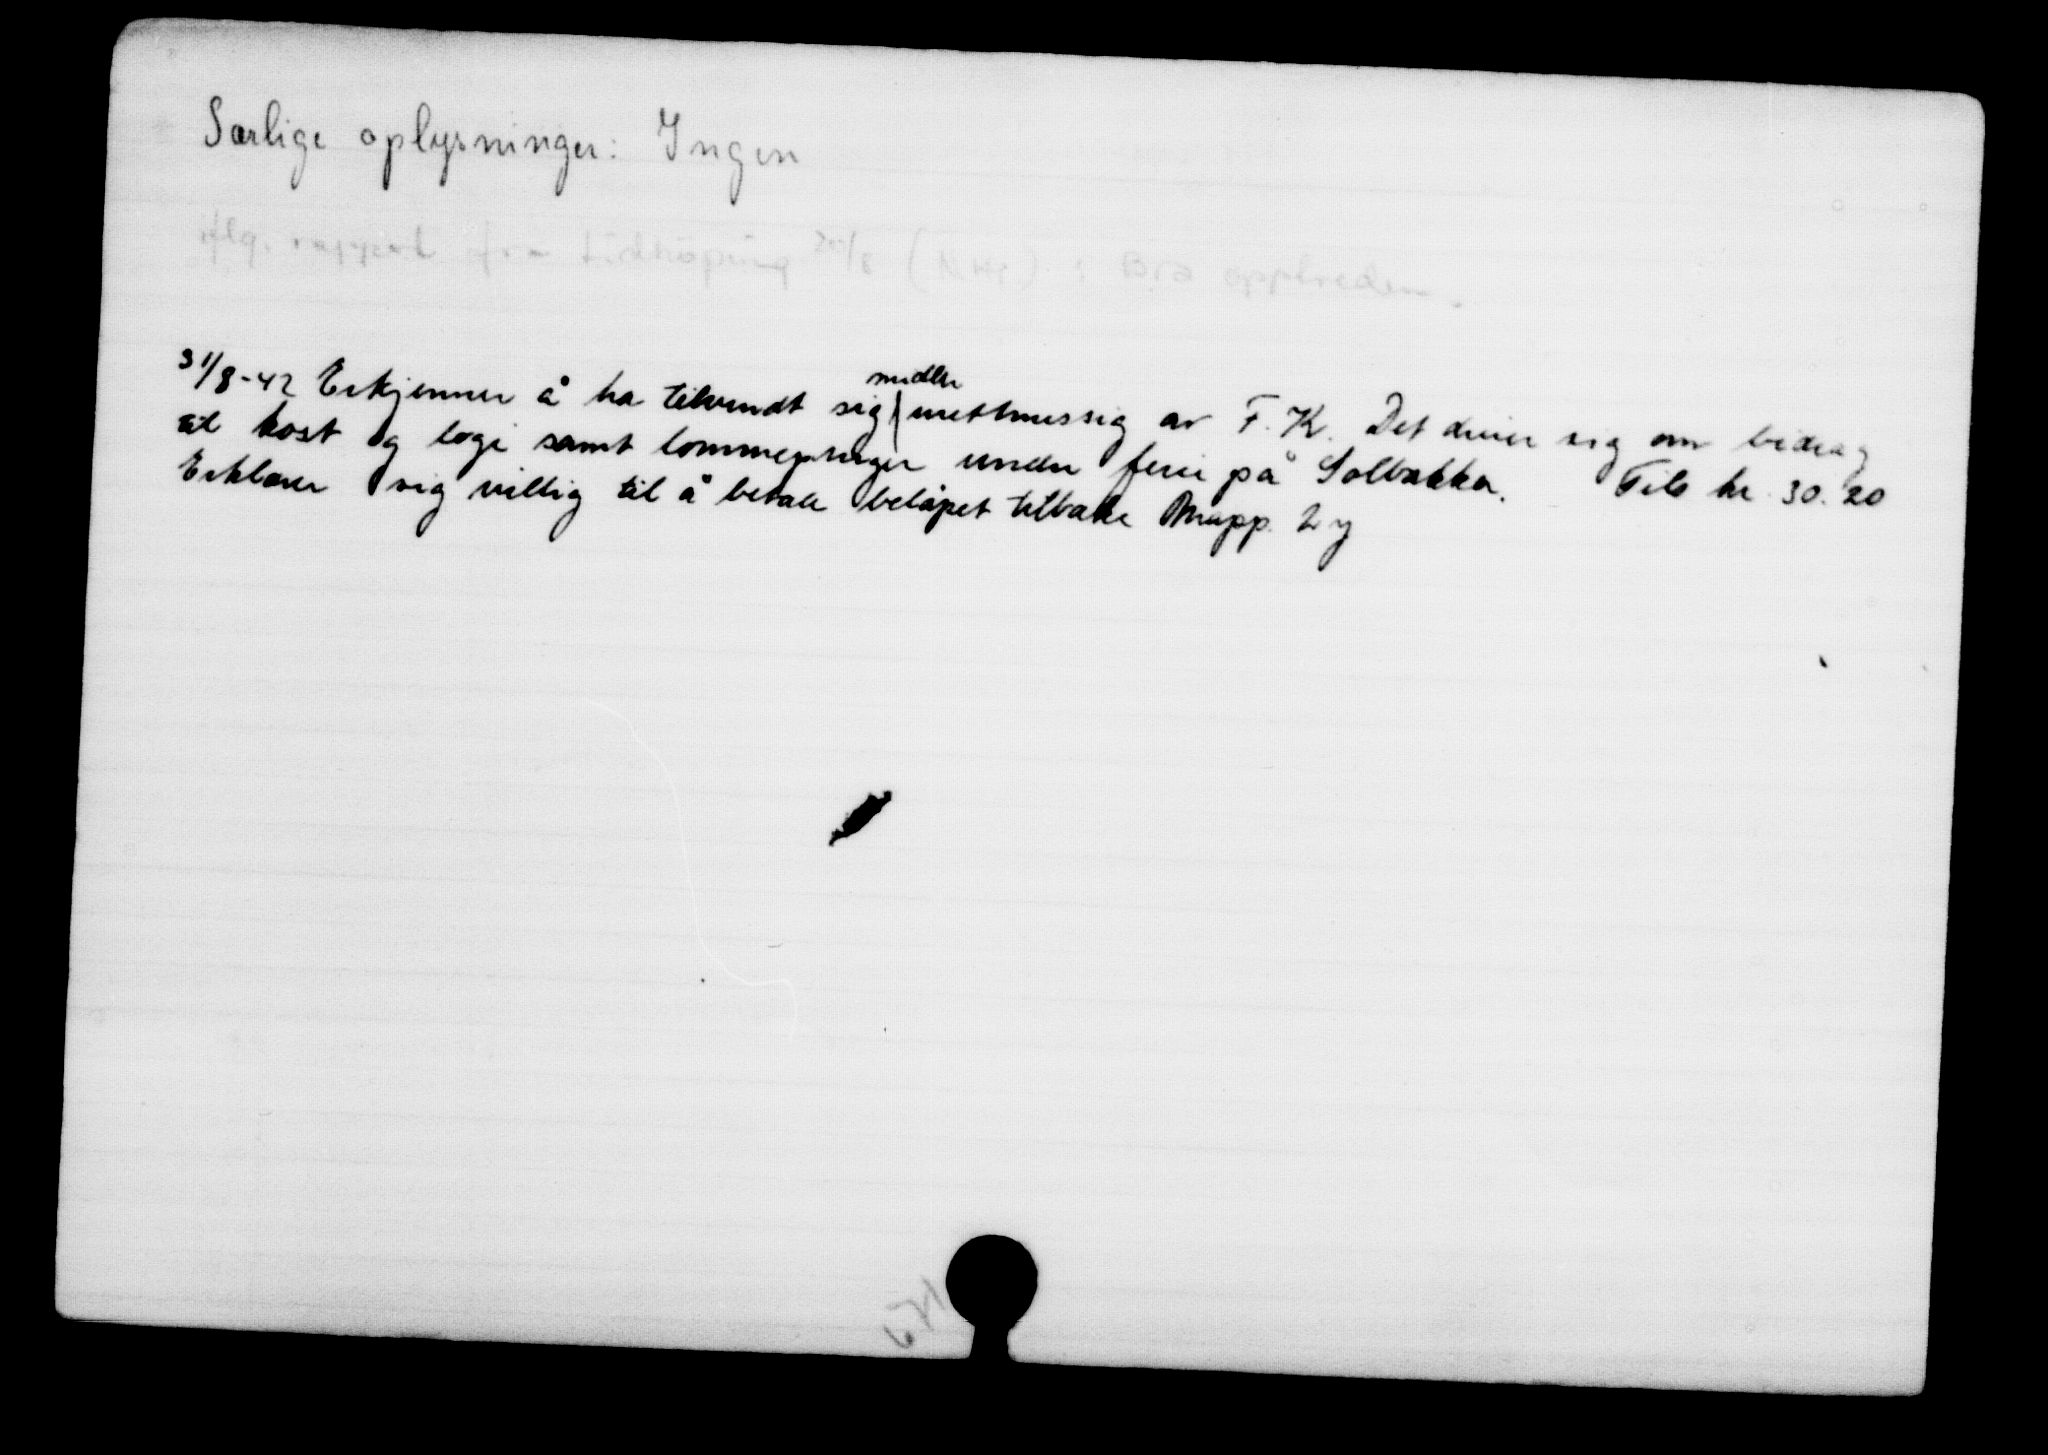 Særlige oplysninger: Ingen
iflg. rapport fra Lidköping 25/8 : Bra opptreden.
31/8-42 Erkjenner å ha tilvendt sig midler urettmessig av F.K. Det dreier sig om bidrag
til kost og logi samt lommepenger under ferie på Solbakka. Tils kr. 30.20
Erklærer sig villig til å betale beløpet tilbake Mapp. 2 y